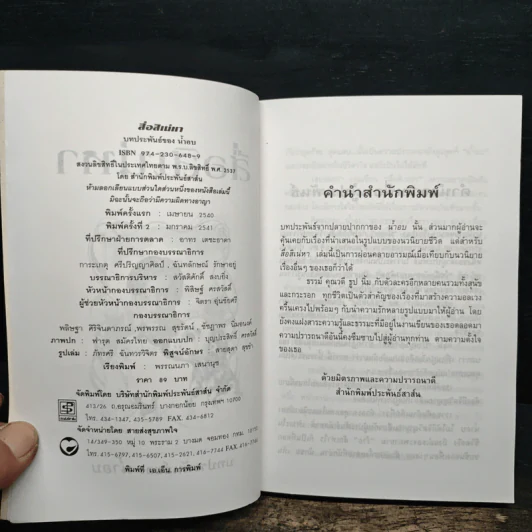 สื่อสิเน่หา
บทประพันธ์ของ น้ำอบ
ISBN 974-230-648-9
สงวนลิขสิทธิ์ในประเทศไทยตาม พ.ร.บ.ลิขสิทธิ์ พ.ศ. 2537
โดย สำนักพิมพ์ประพันธ์สาส์น
ห้ามลอกเลียนแบบส่วนใดส่วนหนึ่งของหนังสือเล่มนี้
มิฉะนั้นจะถือว่ามีความผิดทางอาญา
พิมพ์ครั้งแรก : เมษายน 2540
พิมพ์ครั้งที่ 2 : มกราคม 2541
ที่ปรึกษาฝ่ายการตลาด : อาทร เตชะธาดา
ที่ปรึกษากองบรรณาธิการ
การะเกตุ ศรีปริญญาศิลป์ , ฉันทลักษณ์ รักษาอยู่
บรรณาธิการบริหาร : สวัสดิศักดิ์
หัวหน้ากองบรรณาธิการ : พิสิษฐ์ ตรสวัสดิ์
ผู้ช่วยหัวหน้ากองบรรณาธิการ : จิตรา
กองบรรณาธิการ
ภาพปก : ฟารุต สมัครไทย ออกแบบปก : บุญประสิทธิ์
รูปเล่ม : ภัทรศรี ฉันทวรวิจิตร พิสูจน์อักษร :
เรียงพิมพ์ : พรรณนภา เสนานุช
ราคา 89 บาท
จัดพิมพ์โดย บริษัทสำนักพิมพ์ประพันธ์สาส์น จำกัด
413/26 ถ.อรุณอมรินทร์ บางกอกน้อย กรุงเทพฯ 10700
โทร. 434-1347, 435-5789 FAX. 434-6812
จัดจำหน่ายโดย สายส่งสุขภาพใจ
14/349-350 หมู่ 10 พระราม 2 บางมด จอมทอง กทม.
โทร.415-6797, 415-6507, 415-2621, 416-7744 FAX.
พิมพ์ที่ เอ.เอ็น การพิมพ์
คำนำสำนักพิมพ์
บทประพันธ์จากปลายปากกาของ น้ำอบ นั้น ส่วนมากผู้อ่านจะ
คุ้นเคยกับเรื่องที่นำเสนอในรูปแบบของนวนิยายชีวิต แต่สำหรับ
สื่อสิเน่หา เล่มนี้เป็นการผ่อนคลายอารมณ์เมื่อเทียบกับนวนิยาย
เรื่องอื่นๆ ของเธอก็ว่าได้
ธรรม์ คุณวดี รูป นิ่ม กับตัวละครอีกหลายคนรวมทั้งสุนัข
และกระรอก ทุกชีวิตเป็นตัวสำคัญของเรื่องที่มาสร้างความอลเวง
ครื้นเครงไปพร้อมๆ กับนำความรักหลายรูปแบบมาให้ผู้อ่าน โดย
ยังคงแฝงสาระความรู้และธรรมะที่มีอยู่ในงานเขียนของเธอตลอดมา
ความปรารถนาดีอันนี้คงซึมซาบไปสู่ผู้อ่านทุกท่าน ตามความตั้งใจ
ของเธอ
ด้วยมิตรภาพและความปรารถนาดี
สำนักพิมพ์ประพันธ์สาส์น